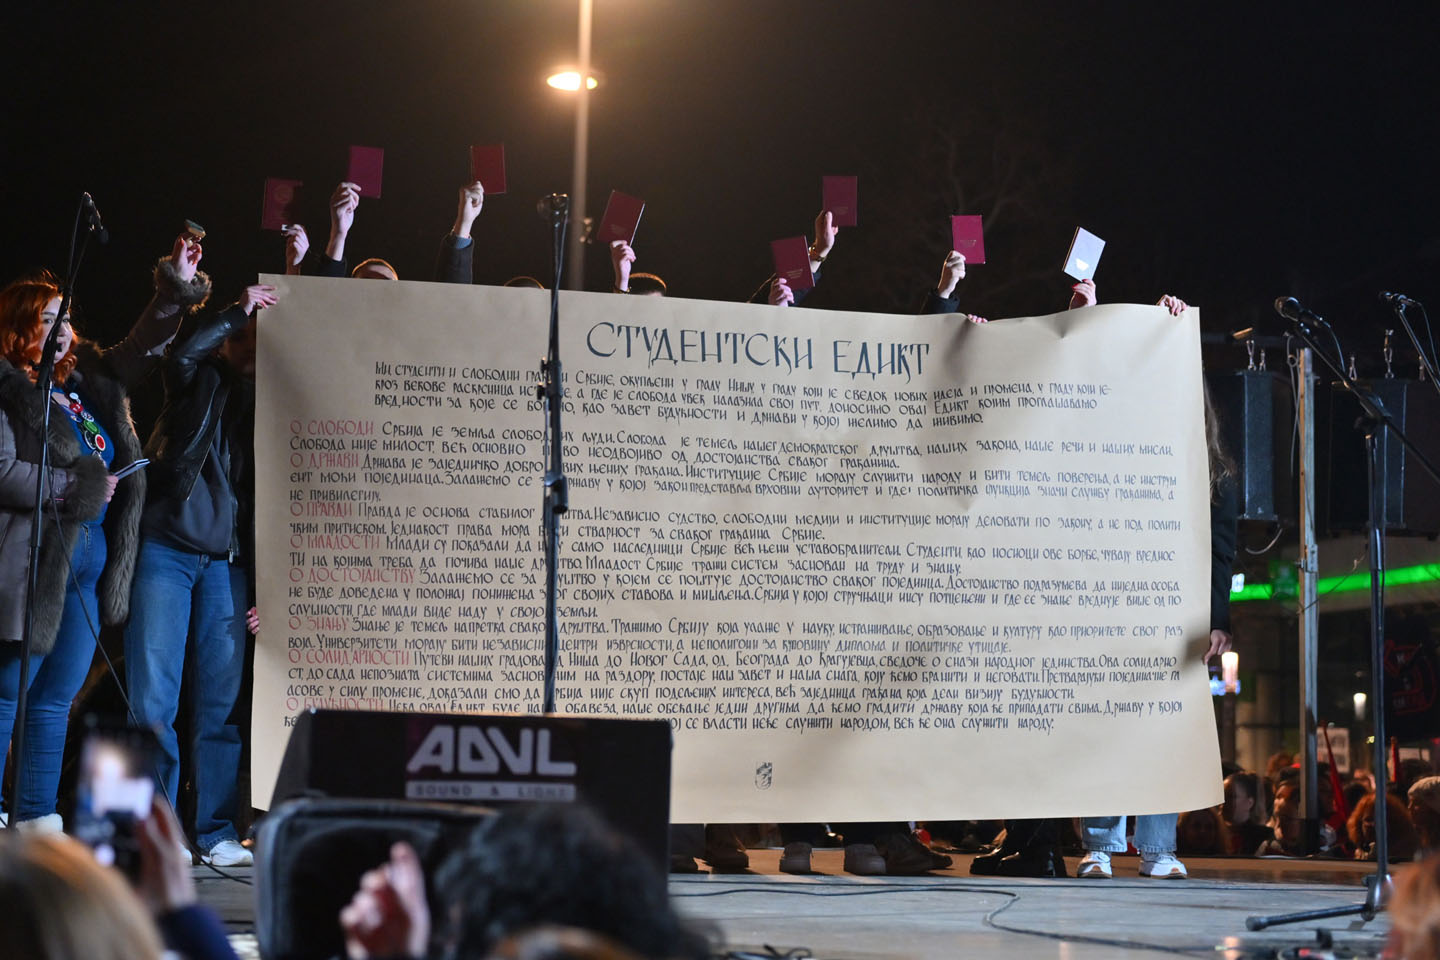 СТУДЕНТСКИ ЕДИКТ
МИ СТУДЕНТИ И СЛОБОДНИ СРБИЈЕ, ОКУПЉЕНИ У ГРАДУ НИШУ, У ГРАДУ КОЈИ ЈЕ СВЕДОК НОВИХ ИДЕЈА И ПРОМЕНА, У ГРАДУ КОЈИ ЈЕ
КРОЗ ВЕКОВЕ РАСКРСНИЦА А ГДЕ ЈЕ СЛОБОДА УВЕК НАЛАЗИЛА СВОЈ ПУТ, ДОНОСИМО ОВАЈ ЕДИКТ КОЈИМ ПРОГЛАШАВАМО
ВРЕДНОСТИ ЗА КОЈЕ СЕ КАО ЗАВЕТ БУДУЋНОСТИ И ДРЖАВИ У КОЈОЈ ЖЕЛИМО ДА ЖИВИМО.
О СЛОБОДИ СРБИЈА ЈЕ ЗЕМЉА ЉУДИ. СЛОБОДА ЈЕ ТЕМЕЉ НАШЕГ ДЕМОКРАТСКОГ ДРУШТВА, НАШИХ ЗАКОНА, НАШЕ РЕЧИ И НАШИХ МИСЛИ.
СЛОБОДА НИЈЕ МИЛОСТ, ВЕЋ ОСНОВНО НЕОДВОЈИВО ОД ДОСТОЈАНСТВА СВАКОГ ГРАЂАНИНА.
О ДРЖАВИ ДРЖАВА ЈЕ ЗАЈЕДНИЧКО ДОБРО ЊЕНИХ ГРАЂАНА. ИНСТИТУЦИЈЕ СРБИЈЕ МОРАЈУ СЛУЖИТИ НАРОДУ И БИТИ ТЕМЕЉ ПОВЕРЕЊА, А НЕ ИНСТРУМ
ЕНТ МОЋИ ПОЈЕДИНАЦА. ЗАЛАЖЕМО СЕ ДРЖАВУ У КОЈОЈ ЗАКОН ПРЕДСТАВЉА ВРХОВНИ АУТОРИТЕТ И ГДЕ ПОЛИТИЧКА ФУНКЦИЈА ЗНАЧИ СЛУЖБУ ГРАЂАНИМА, А
НЕ ПРИВИЛЕГИЈУ.
О ПРАВДИ ПРАВДА ЈЕ ОСНОВА СТАБИЛНОГ НЕЗАВИСНО СУДСТВО, СЛОБОДНИ МЕДИЈИ И ИНСТИТУЦИЈЕ МОРАЈУ ДЕЛОВАТИ ПО ЗАКОНУ, А НЕ ПОД ПОЛИТИ
ЧКИМ ПРИТИСКОМ. ЈЕДНАКОСТ ПРАВА МОРА СТВАРНОСТ ЗА СВАКОГ ГРАЂАНИНА СРБИЈЕ.
О МЛАДОСТИ МЛАДИ СУ ПОКАЗАЛИ ДА САМО НАСЛЕДНИЦИ СРБИЈЕ ВЕЋ ЊЕНИ УСТАВОБРАНИТЕЉИ. СТУДЕНТИ, КАО НОСИОЦИ ОВЕ БОРБЕ, ЧУВАЈУ ВРЕДНОС
ТИ НА КОЈИМА ТРЕБА ДА ПОЧИВА НАШЕ МЛАДОСТ СРБИЈЕ ТРАЖИ СИСТЕМ ЗАСНОВАН НА ТРУДУ И ЗНАЊУ.
О ДОСТОЈАНСТВУ ЗАЛАЖЕМО СЕ ЗА ДРУШТВО У КОЈЕМ СЕ ПОШТУЈЕ ДОСТОЈАНСТВО СВАКОГ ПОЈЕДИНЦА. ДОСТОЈАНСТВО ПОДРАЗУМЕВА ДА НИЈЕДНА ОСОБА
НЕ БУДЕ ДОВЕДЕНА У ПОЛОЖАЈ ПОНИЖЕЊА СВОЈИХ СТАВОВА И МИШЉЕЊА. СРБИЈА У КОЈОЈ СТРУЧЊАЦИ НИСУ ПОТЦЕЊЕНИ И ГДЕ СЕ ЗНАЊЕ ВРЕДНУЈЕ ВИШЕ ОД ПО
СЛУШНОСТИ, ГДЕ МЛАДИ ВИДЕ НАДУ У СВОЈОЈ ЗЕМЉИ.
О ЗНАЊУ ЗНАЊЕ ЈЕ ТЕМЕЉ НАПРЕТКА СВАКОГ ДРУШТВА. ТРАЖИМО СРБИЈУ КОЈА УЛАЖЕ У НАУКУ, ИСТРАЖИВАЊЕ, ОБРАЗОВАЊЕ И КУЛТУРУ КАО ПРИОРИТЕТЕ СВОГ РАЗ
ВОЈА. УНИВЕРЗИТЕТИ МОРАЈУ БИТИ НЕЗАВИСНИ ЦЕНТРИ ИЗВРСНОСТИ, А НЕ ПОЛИГОНИ ЗА КУПОВИНУ ДИПЛОМА И ПОЛИТИЧКЕ УТИЦАЈЕ.
О СОЛИДАРНОСТИ ПУТЕВИ НАШИХ ГРАДОВА, ОД НИША ДО НОВОГ САДА, ОД БЕОГРАДА ДО КРАГУЈЕВЦА, СВЕДОЧЕ О СНАЗИ НАРОДНОГ ЈЕДИНСТВА. ОВА СОЛИДАРНО
СТ, ДО САДА НЕПОЗНАТА СИСТЕМИМА ЗАСНОВАНИМ НА РАЗДОРУ, ПОСТАЈЕ НАШ ЗАВЕТ И НАША СНАГА, КОЈУ ЋЕМО БРАНИТИ И НЕГОВАТИ. ПРЕТВАРАЈУЋИ ПОЈЕДИНАЧНЕ ГЛ
АСОВЕ У СИЛУ ПРОМЕНЕ, ДОКАЗАЛИ СМО ДА СРБИЈА НИЈЕ СКУП ПОДЕЉЕНИХ ИНТЕРЕСА, ВЕЋ ЗАЈЕДНИЦА ГРАЂАНА КОЈА ДЕЛИ ВИЗИЈУ БУДУЋНОСТИ.
О БУДУЋНОСТИ НЕКА ОВАЈ ЕДИКТ БУДЕ НАША ОБАВЕЗА, НАШЕ ОБЕЋАЊЕ ЈЕДНИ ДРУГИМА ДА ЋЕМО ГРАДИТИ ДРЖАВУ КОЈА ЋЕ ПРИПАДАТИ СВИМА. ДРЖАВУ У КОЈОЈ
СЕ ВЛАСТИ НЕЋЕ СЛУЖИТИ НАРОДОМ, ВЕЋ ЋЕ ОНА СЛУЖИТИ НАРОДУ.
ADVL
SOUND & LIGHT